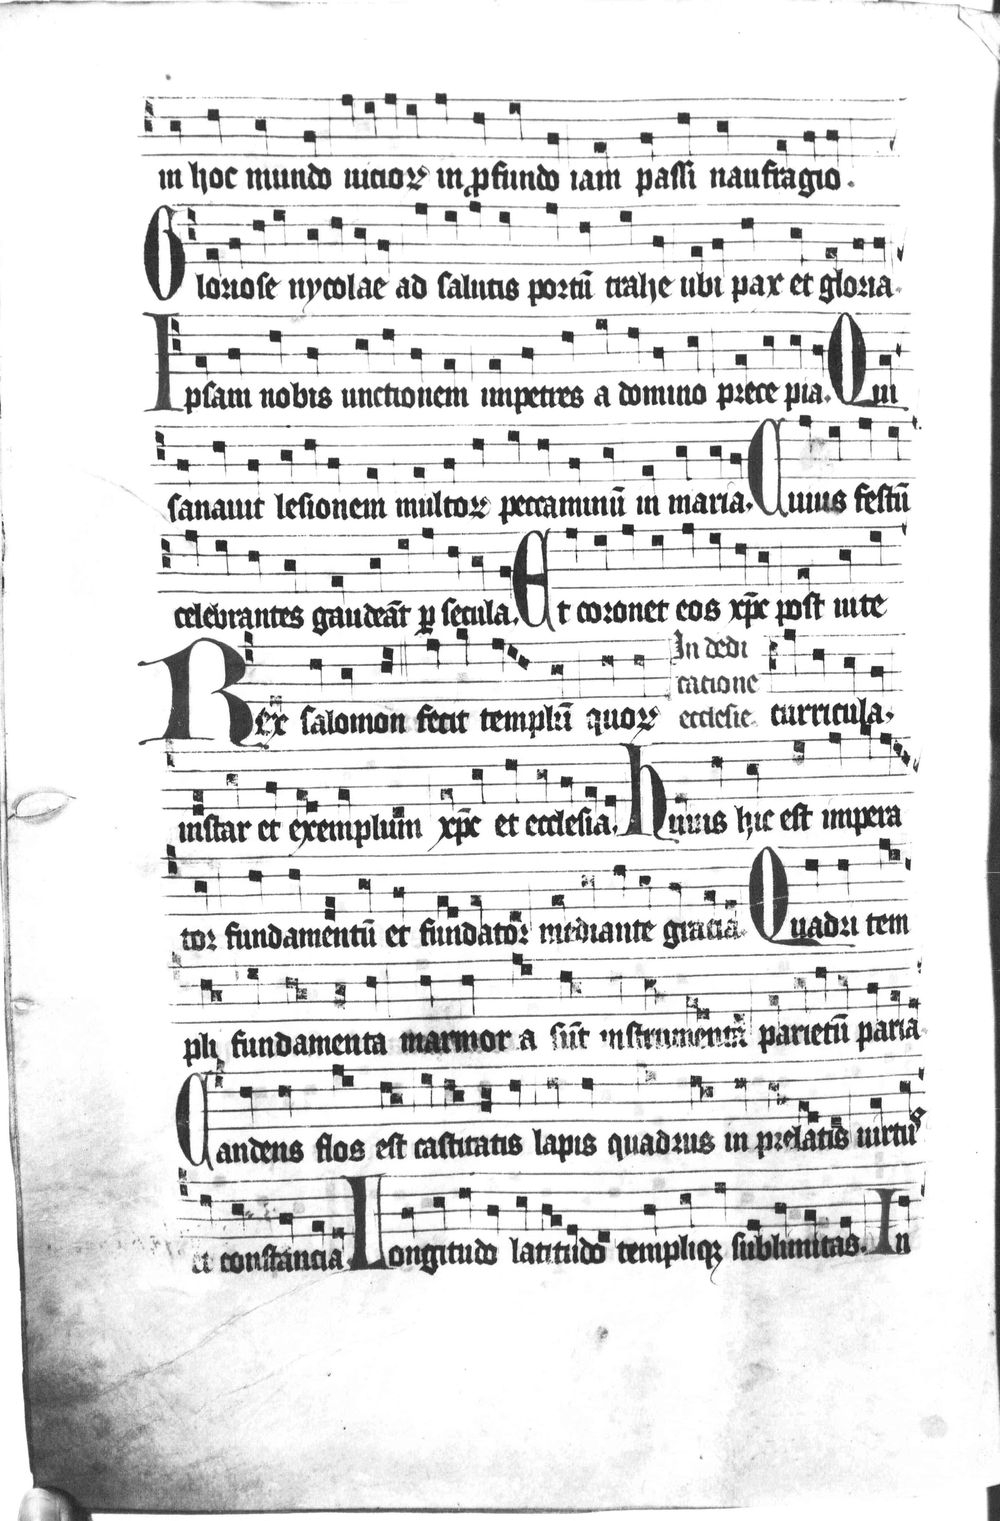 in hoc mundo uicioꝝ in ꝓfundo iam passi naufragio.
Gloriose nycolae ad salutis portū trahe ubi pax et gloria.
Ipsam nobis unctionem impetres a domino prece pia. Qui
sanauit lesionem multoꝝ peccaminū in maria. Cuius festū
celebrantes gaudeāt ꝑ secula. Et coronet eos xp̄c post uite
curricula.
In dedicatione ecclesie
Rex salomon fecit templū quoꝝ
instar et exemplum xp̄c et ecclesia. Huius hic est impera
tor fundamentū et fundator mediante gracia. Quadri tem
pli fundamenta marmor a sūt instrumenta parietū paria
Candens flos est castitatis lapis quadrus in prelatis uirtuˢ
et constancia. Longitudo latitudo templiqꝫ sublimitas. In